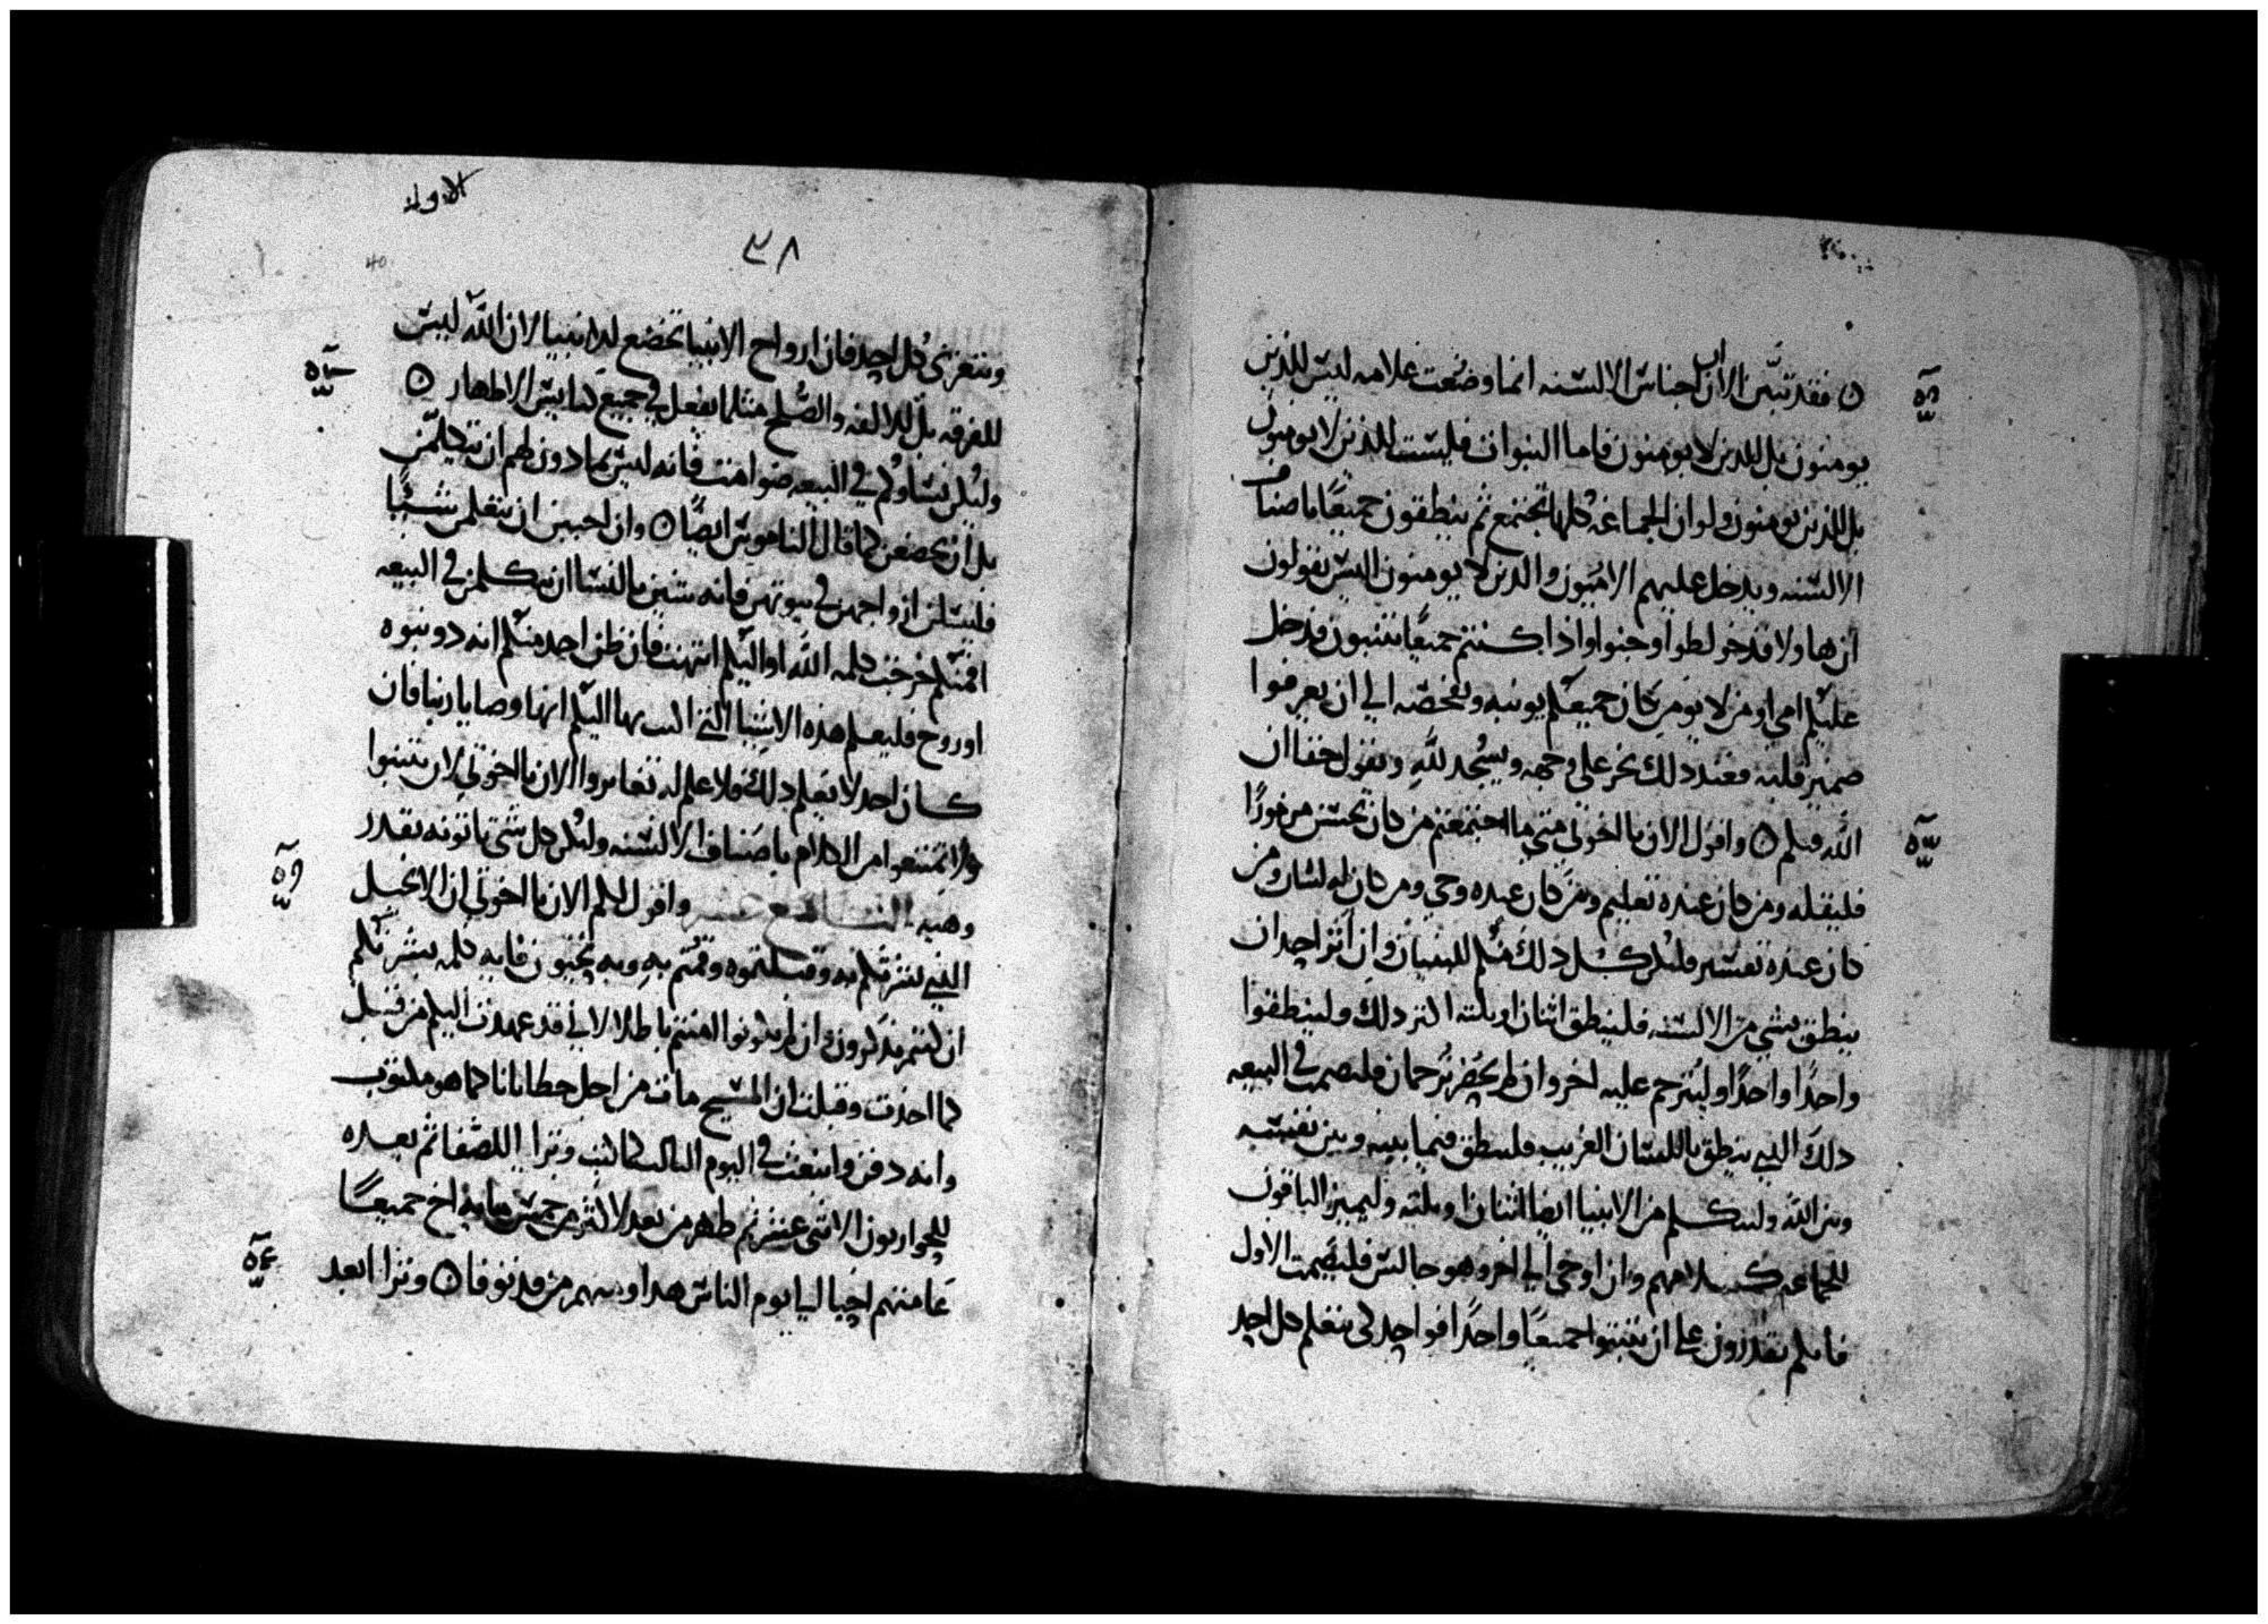 ه فقد تبين الان ان اجناس الالسنه انما وضعت علامه ليس للذين
يومنون بل للدين لا يومنون فاما النبوات فليست للذين لا يومنون
بل للذين يومنون ولو ان الجماعه كلها تجتمع ثم ينطقون جميعًا باصناف
الالسنه ويدخل عليهم الاميون والدين لا يومنون اليس يقولون
ان هاولا قد خولطوا وجنوا واذا كنتم جميعًا تتنبون فدخل
عليكم امي او من لا يومن كان جميعكم يونبه ويفحصه الي ان يعرفوا
ضمير قلبه فعند دلك يخر على وجهه ويسجد لله ويقول حقا ان
الله فيكم ه واقول الان يا اخوتي متي ما اجتمعتم من كان يحسن مزمورًا
فليقله ومن كان عنده تعليم ومن كان عنده وحي ومن كان له لسان ومن
كان عنده تفسير فليكن كل دلك منكم للبنيان وان اثر احد ان
ينطق بشي من الالسنه فلينطق اثنان او ثلثه اكثر دلك ولينطقوا
واحدًا واحدًا وليترجم عليه اخر وان لم يحضر ترجمان فليصمت في البيعه
دلك الذي ينطق باللسان الغريب فلينطق فيما بينه وبين نفسه
وبين الله وليتكلم من الانبيا ايضا اثنان او ثلثه وليميز الباقون
للجماعه كلامهم وان اوحي الي اخر وهو جالس فليصمت الاول
فانكم تقدرون على ان تتنبوا جميعًا واحدًا فواحد لكي يتعلم كل احد
الاولى
٣٨
40
ويتعزى كل احد فان ارواح الانبيا تخضع للانبيا لان الله ليس
للفرقه بل للالفه والصلح مثلما يفعل في جميع كنايس الاطهار ه
وليكن نساوكم في البيعه صوامت فانه ليس بمادون لهم ان يتكلمن
بل ان يخضعن كما قال الناموس ايضًا ه وان احببن ان يتعلمن شيئًا
فليسلن ازواجهن في بيوتهن فانه شين بالنسا ان يتكلمن في البيعه
افمنكم خرجت كلمه الله او اليكم انتهت فان ظن احد منكم انه دو نبوه
او روح فليعلم هذه الاشيا التي اكتب بها اليكم انها وصايا ربنا فان
كان احد لا يعلم دلك فلا علم له تغايروا الان يا اخوتي لان تتنبوا
ولا تمتنعوا من الكلام باصناف الالسنه وليكن كل شي تاتونه بقدر
وهيه واقول لكم الان يا اخوتي ان الانجيل
الذي بشرتكم به وقبلتموه وقمتم به وبه تحيون فايه كلمه بشرتكم
ان كنتم تدكرون ان لم تكونوا امنتم باطلا لاني قد عهدت اليكم من قبل
كما اخدت وقبلت ان المسيح مات من اجل خطايانا كما هو مكتوب
وانه دفن وانبعث في اليوم التالت كما كتب وترايا للصفا ثم بعده
للحواريون الاثنى عشر ثم ظهر من بعد لاكثر من خمس مايه اخ جميعًا
عامتهم احيا اليا يوم الناس هدا ومنهم من قد توفا ه وترايا بعد